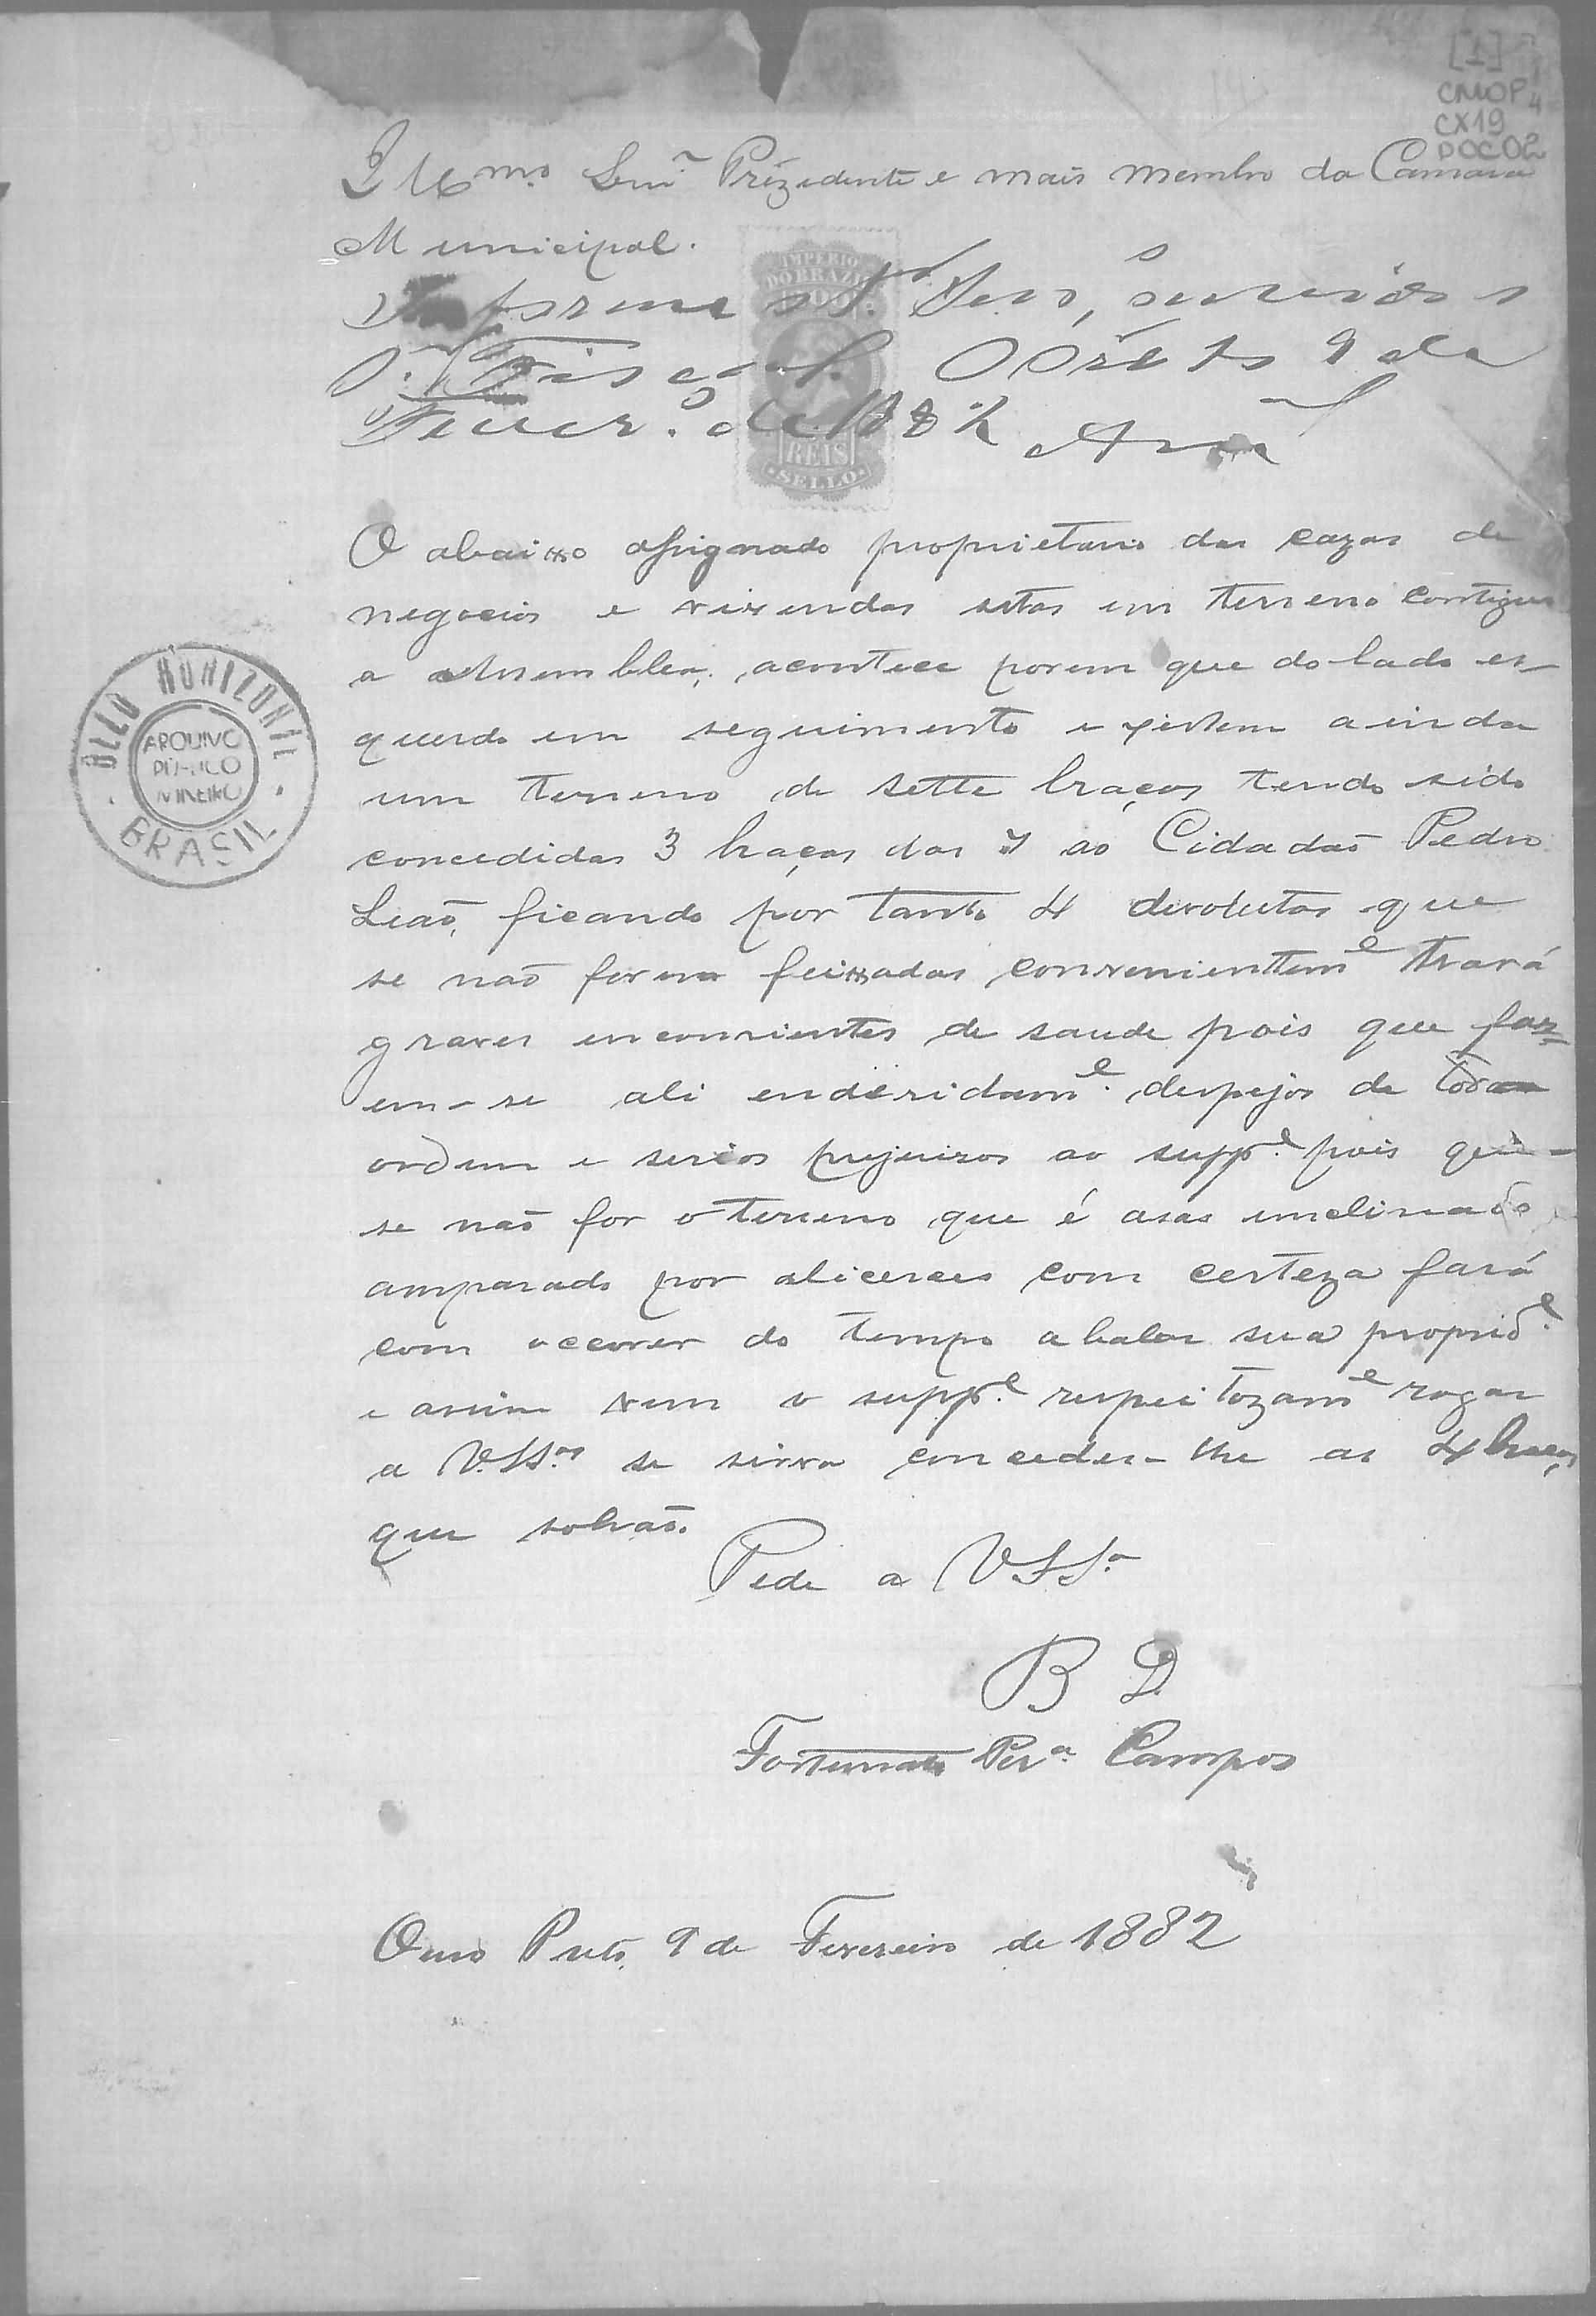 [1]
CMOP
4
CX19
DOC02
Illmo. Senr. Prezidente e mais membro da Camara
Municipal.
IMPERIO
DO BRAZIL
200
REIS
SELLO
Informe o Sr.
Fiscal. OPreto 9 de
Fever.o de 1882
O abaixo assignado proprietario das cazas de
negocios e vivendas sitas em terreno contiguo
a Assemblea, acontece porem que do lado es-
querdo em seguimento existem ainda
um terreno de sette braças tendo sido
concedidas 3 braças das 7 ao Cidadão Pedro
Leão, ficando por tanto 4 devolutas que
se não forem feixadas convenienttem.e trará
graves inconvientes de saude pois que faz=
em-se ali endevidam.e despejos de toda
ordem e serios prejuizos ao supp.e pois que-
se não for o terreno que é asas inclinado
amparado por alicerces com certeza fará
com o correr do tempo abalar sua propried.e
e assim vem o supp.e respeitozam.e rogar
a V.SS.as se sirva conceder-lhe as 4 braças
que sobrão.
Pede a VSS.a
B D
Fortunato Per.a Campos
Ouro Preto, 9 de Fevereiro de 1882
BELLO HORIZONTE
ARQUIVO
PUBLICO
MINEIRO
BRASIL